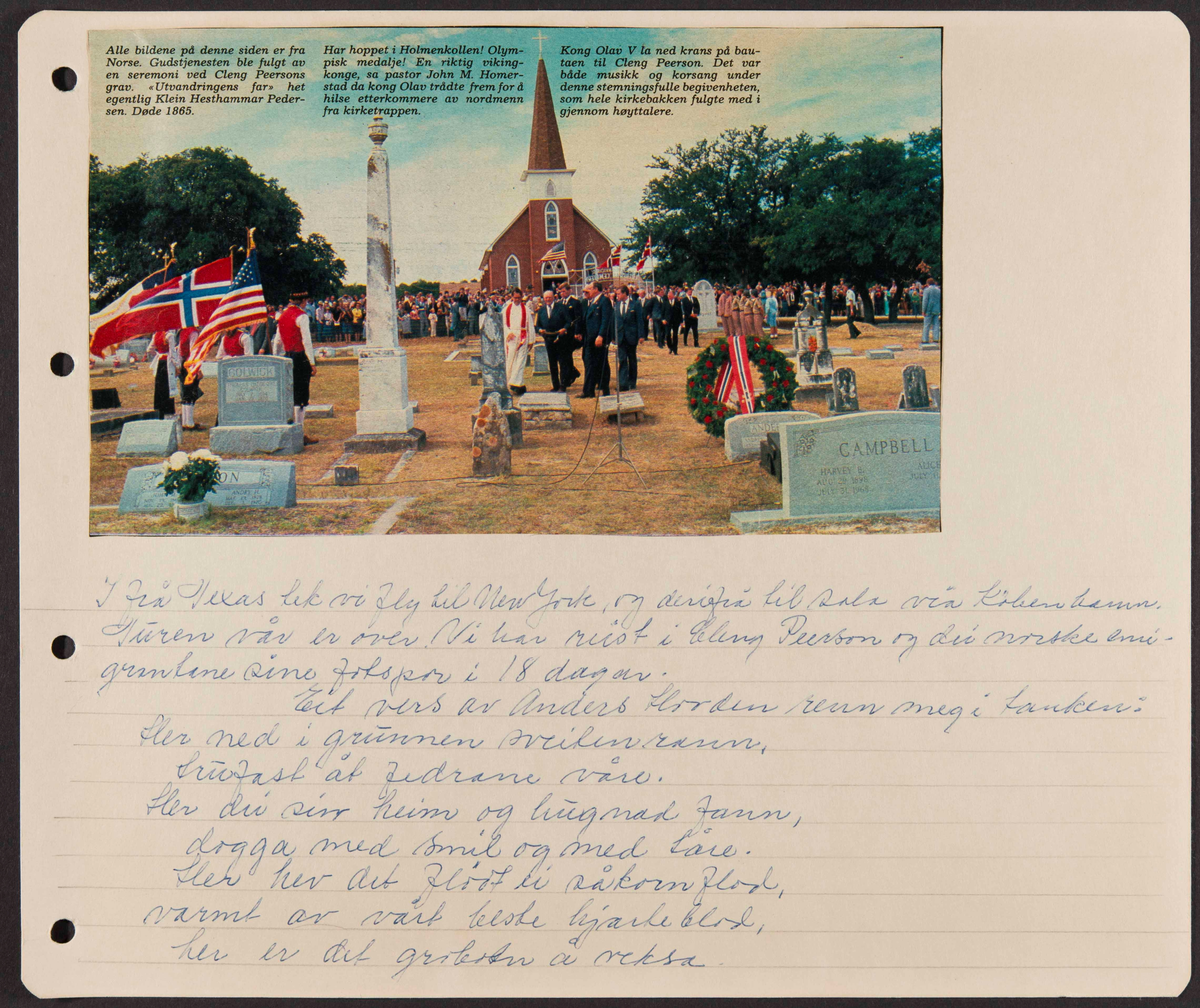 Alle bildene på denne siden er fra
Norse. Gudstjenesten ble fulgt av
en seremoni ved Cleng Peersons
grav. «Utvandringens far» het
egentlig Klein Hesthammar Peder-
sen. Døde 1865.
Har hoppet i Holmenkollen! Olym-
pisk medalje! En riktig viking-
konge, sa pastor John M. Homer-
stad da kong Olav trådte frem for å
hilse etterkommere av nordmenn
fra kirketrappen.
Kong Olav V la ned krans på bau-
taen til Cleng Peerson. Det var
både musikk og korsang under
denne stemningsfulle begivenheten,
som hele kirkebakken fulgte med i
gjennom høyttalere.
COLWICK
ON
ANDE
CAMPBELL
HARVEY B.
ALICE
JULY
I frå Texas tek vi fly til New York, og derifrå til Sola via Köbenhamn.
Turen vår er over. Vi har reist i Cleng Peerson og dei norske emi-
grantane sine fotspor i 18 dagar.
Eit vers av Anders Hovden renn meg i tanken:
Her ned i grunnen sveiten rann,
trufast åt fedrane våre.
Her dei sin heim og hugnad fann,
dogga med smil og med tåre.
Her hev det flödt ei såkornflod,
varmt av vårt beste hjarteblod,
her er det grobotn å veksa.